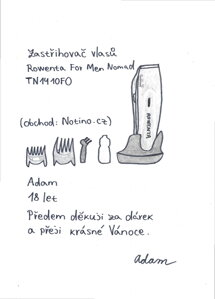 Zastřihovač vlasů
Rowenta For Men Nomad
TN1410FO
(obchod: Notino.cz)
ROWENTA
Adam
18 let
Předem děkuji za dárek
a přeji krásné Vánoce.
Adam